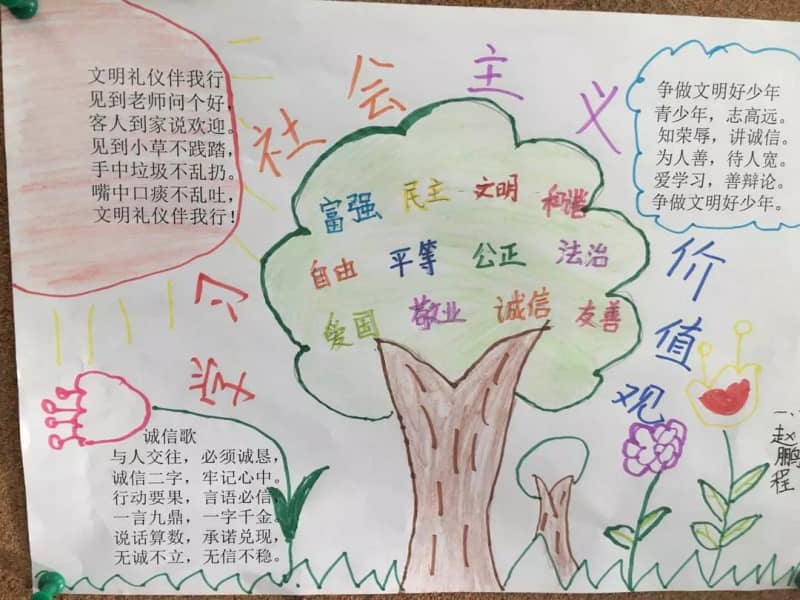 学习社会主义价值观
文明礼仪伴我行
见到老师问个好，
客人到家说欢迎。
见到小草不践踏，
手中垃圾不乱扔。
嘴中口痰不乱吐，
文明礼仪伴我行！
富强 民主 文明 和谐
自由 平等 公正 法治
爱国 敬业 诚信 友善
争做文明好少年
青少年，志高远。
知荣辱，讲诚信。
为人善，待人宽。
爱学习，善辩论。
争做文明好少年。
诚信歌
与人交往，必须诚恳，
诚信二字，牢记心中。
行动要果，言语必信，
一言九鼎，一字千金。
说话算数，承诺兑现，
无诚不立，无信不稳。
一、赵鹏程